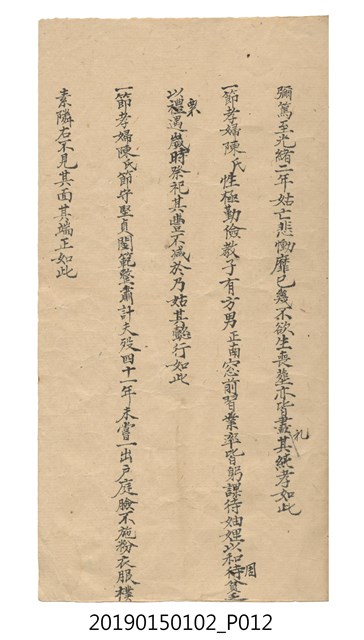 彌篤至光緒二年姑亡悲慟靡已幾不欲生喪葬亦皆盡其禮純孝如此
一節孝婦陳氏性極勤儉教子有方男正南窓前習業率皆躬課待妯娌以和周貧乏
以禮遇歲時祭祀其豐不減於乃姑其懿行如此
一節孝婦陳氏節守堅貞閫範整肅計夫歿四十一年未嘗一出戶庭臉不施粉衣服樸
素隣右不見其面其端正如此
20190150102_P012